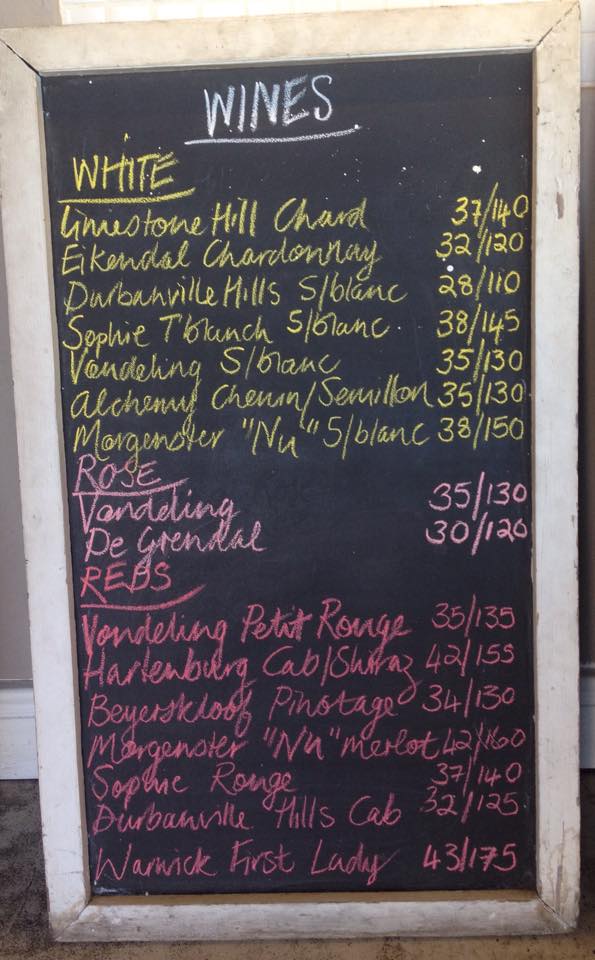 WINES
WHITE
Limestone Hill Chard 37/140
Eikendal Chardonnay 32/120
Durbanville Hills S/blanc 28/110
Sophie T'blanch S/blanc 38/145
Vondeling S/blanc 35/130
Alchemy Chenin/Semillon 35/130
Morgenster "Nu" S/blanc 38/150
ROSE
Vondeling 35/130
De Grendal 30/120
REDS
Vondeling Petit Rouge 35/135
Hartenburg Cab/Shiraz 42/155
Beyerskloof Pinotage 34/130
Morgenster "Nu" merlot 42/160
Sophie Rouge 37/140
Durbanville Hills Cab 32/125
Warwick First Lady 43/175